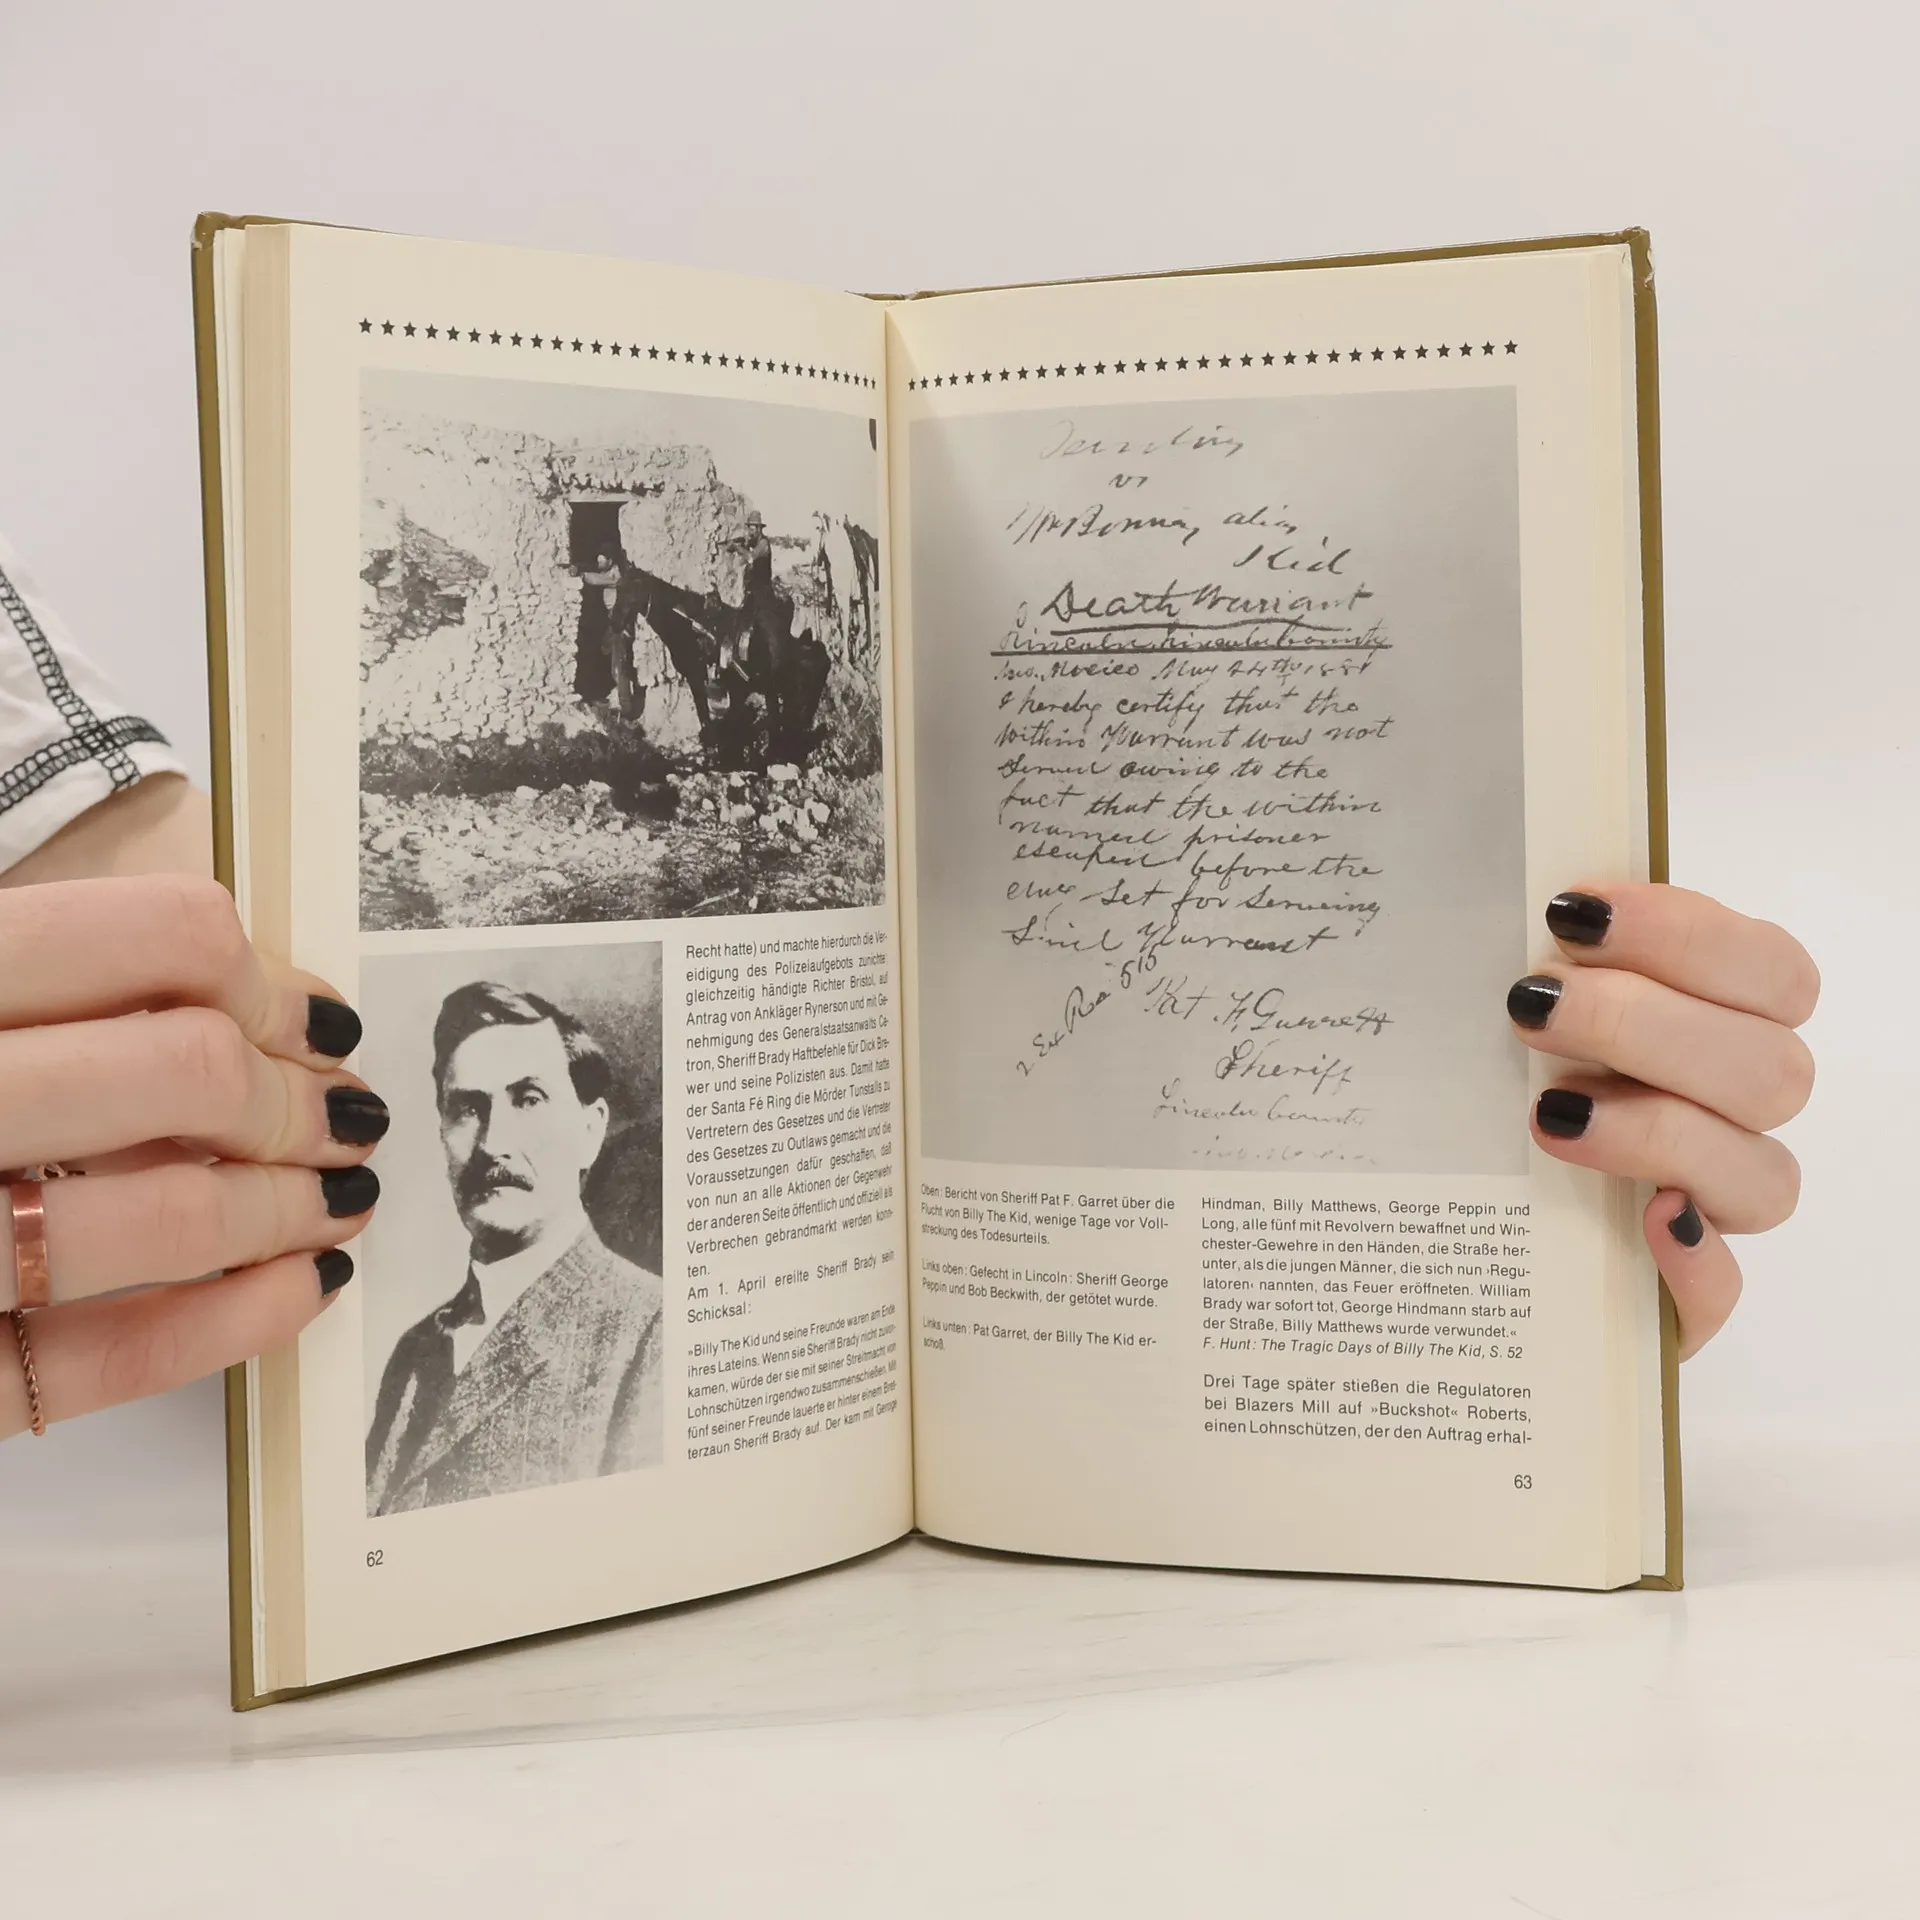 Recht hatte) und machte hierdurch die Ver-
eidigung des Polizeiaufgebots zunichte:
gleichzeitig händigte Richter Bristol, auf
Antrag von Ankläger Rynerson und mit Ge-
nehmigung des Generalstaatsanwalts Ca-
tron, Sheriff Brady Haftbefehle für Dick Bre-
wer und seine Polizisten aus. Damit hatte
der Santa Fé Ring die Mörder Tunstalls zu
Vertretern des Gesetzes und die Vertreter
des Gesetzes zu Outlaws gemacht und die
Voraussetzungen dafür geschaffen, daß
von nun an alle Aktionen der Gegenwehr
der anderen Seite öffentlich und offiziell als
Verbrechen gebrandmarkt werden konn-
ten.
Am 1. April ereilte Sheriff Brady sein
Schicksal:
»Billy The Kid und seine Freunde waren am Ende
ihres Lateins. Wenn sie Sheriff Brady nicht zuvor-
kamen, würde der sie mit seiner Streitmacht von
Lohnschützen irgendwo zusammenschießen. Mit
fünf seiner Freunde lauerte er hinter einem Bret-
terzaun Sheriff Brady auf. Der kam mit George
62
vs
alias
Kid
Death Warrant
Lincoln Lincoln County
New Mexico May 24th 1881
I hereby certify that the
within Warrant was not
served owing to the
fact that the within
named prisoner
escaped before the
day set for serveing
Said Warrant
Pat F. Garrett
Sheriff
Lincoln County
New Mexico
Oben: Bericht von Sheriff Pat F. Garret über die
Flucht von Billy The Kid, wenige Tage vor Voll-
streckung des Todesurteils.
Links oben: Gefecht in Lincoln: Sheriff George
Peppin und Bob Beckwith, der getötet wurde.
Links unten: Pat Garret, der Billy The Kid er-
schoß.
Hindman, Billy Matthews, George Peppin und
Long, alle fünf mit Revolvern bewaffnet und Win-
chester-Gewehre in den Händen, die Straße her-
unter, als die jungen Männer, die sich nun ›Regu-
latoren‹ nannten, das Feuer eröffneten. William
Brady war sofort tot, George Hindmann starb auf
der Straße, Billy Matthews wurde verwundet.«
F. Hunt: The Tragic Days of Billy The Kid, S. 52
Drei Tage später stießen die Regulatoren
bei Blazers Mill auf »Buckshot« Roberts,
einen Lohnschützen, der den Auftrag erhal-
63